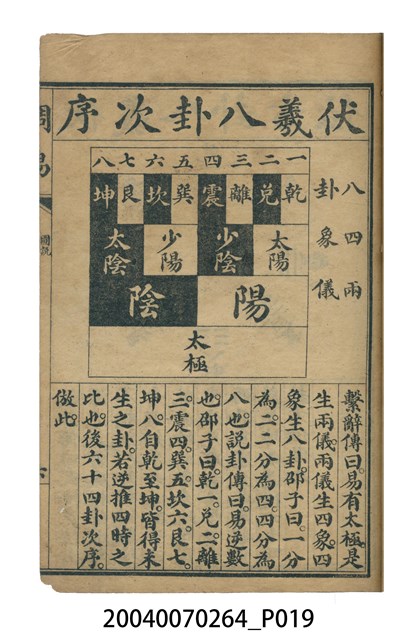 伏羲八卦次序
一二三四五六七八
乾兌離震巽坎艮坤
太陽少陰少陽太陰
陽陰
太極
八卦
四象
兩儀
繫辭傳曰易有太極是
生兩儀兩儀生四象四
象生八卦邵子曰一分
為二二分為四四分為
八也說卦傳曰易逆數
也邵子曰乾一兌二離
三震四巽五坎六艮七
坤八自乾至坤皆得未
生之卦若逆推四時之
比也後六十四卦次序
倣此
周易
圖說
20040070264_P019